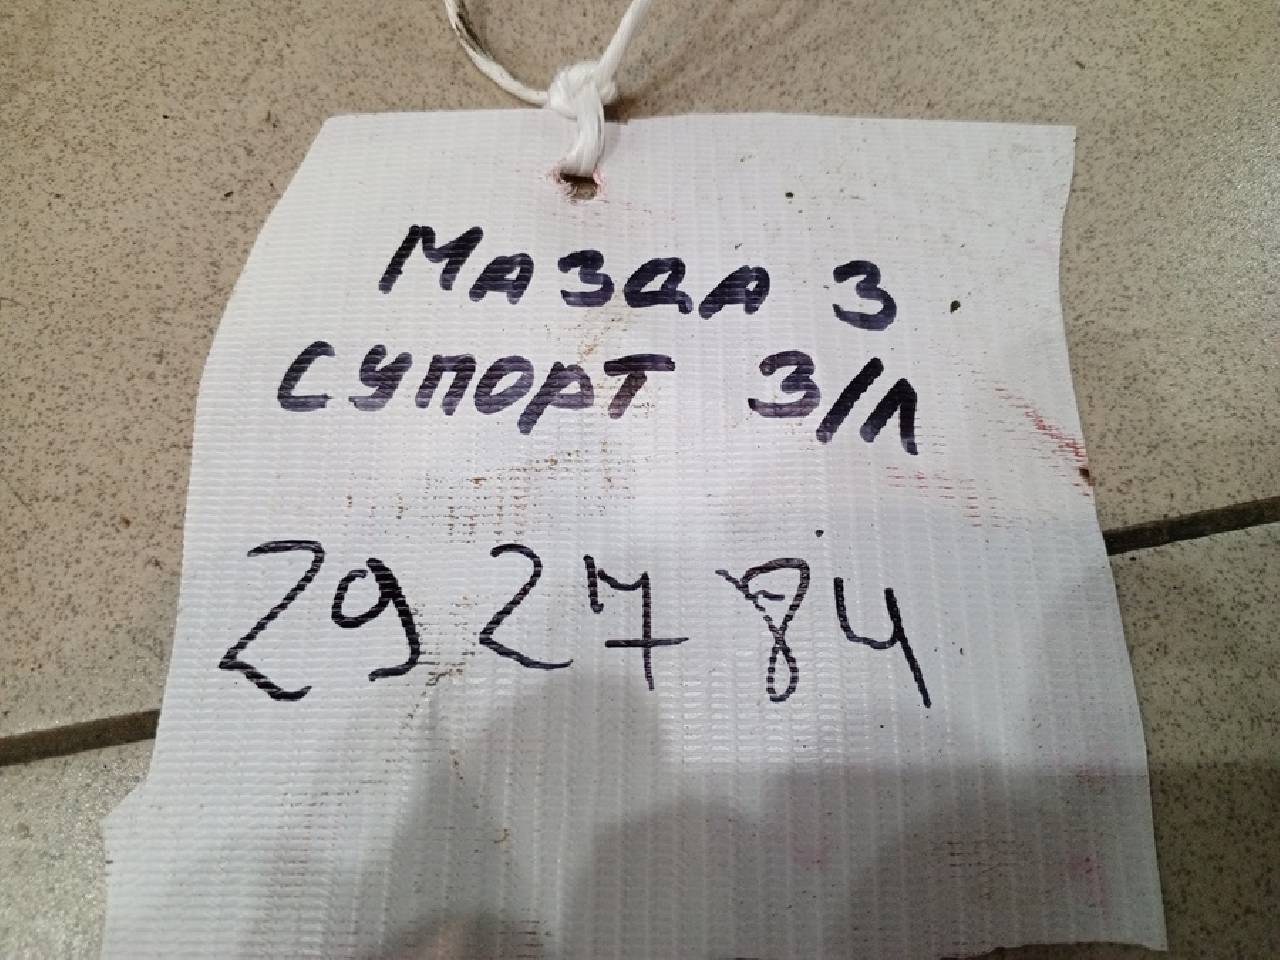 Мазда 3
супорт З/Л
29 27 84